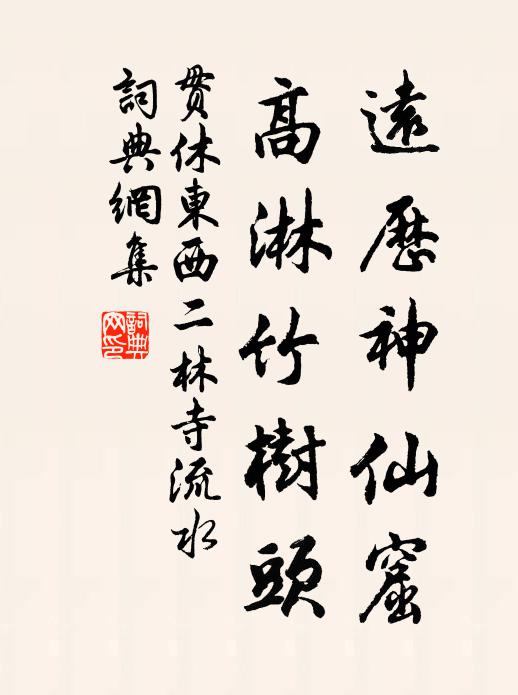 遠歷神仙窟
高淋竹樹頭
貫休東西二林寺流水
詞典網集
詞典
网印